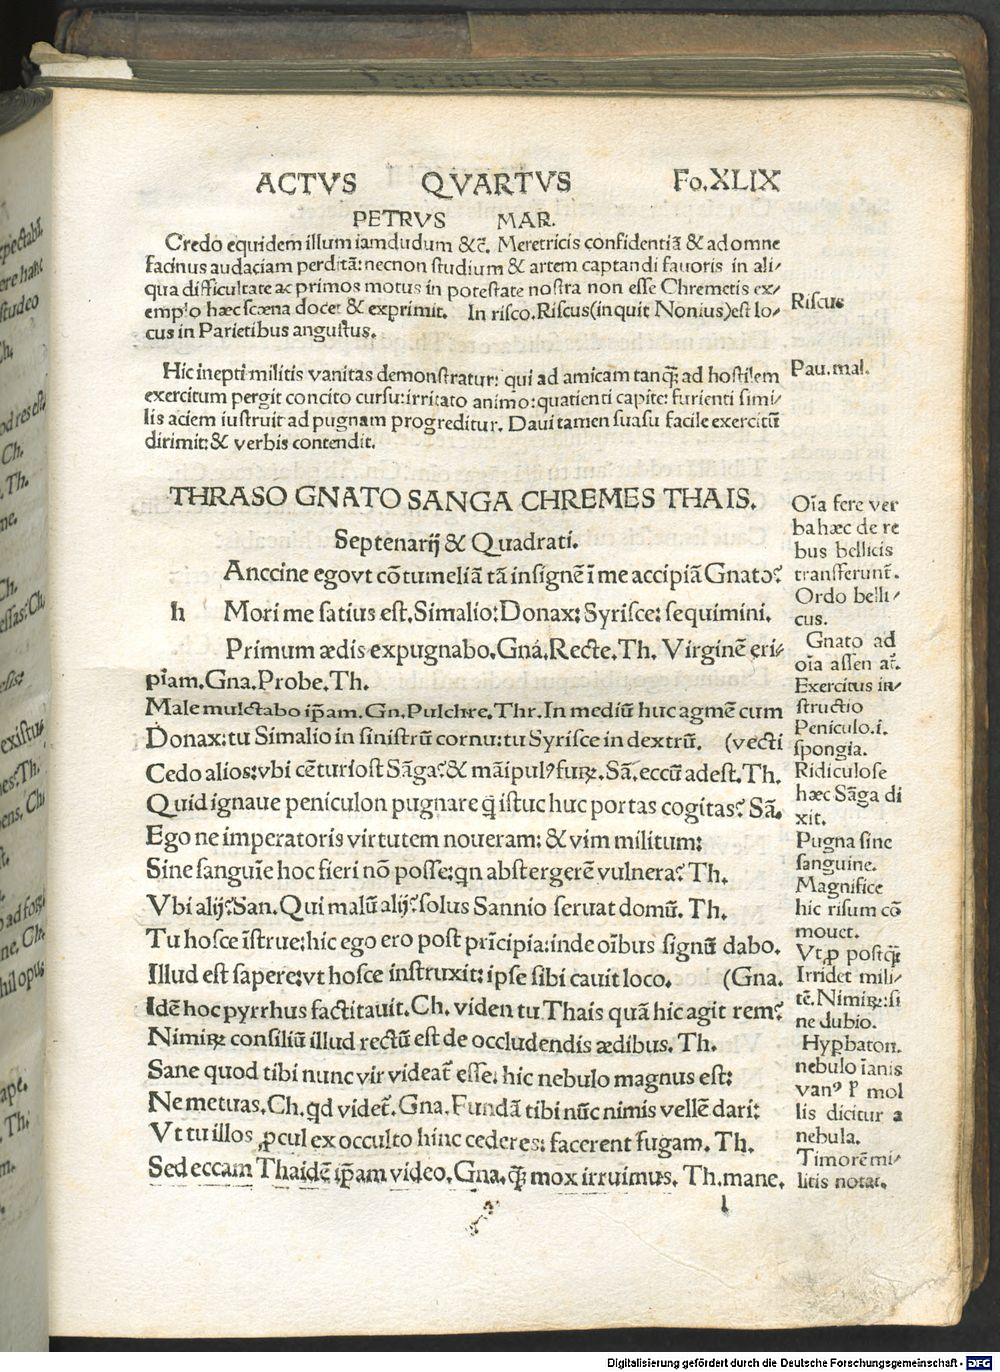 ACTVS QVARTVS Fo.XLIX
PETRVS MAR.
Credo equidem illum iamdudum &c̄. Meretricis confidentiā & ad omne
facinus audaciam perditā: necnon studium & artem captandi fauoris in ali/
qua difficultate ac primos motus in potestate nostra non esse Chremetis ex/
emplo hæc scæna docet & exprimit. In risco. Riscus (inquit Nonius) est lo/
cus in Parietibus angustus.
Riscus
Hic inepti militis vanitas demonstratur: qui ad amicam tanq̄; ad hostilem
exercitum pergit concito cursu: irritato animo: quatienti capite: furienti simi/
lis aciem iustruit ad pugnam progreditur. Daui tamen suasu facile exercitū
dirimit: & verbis contendit.
Pau. mal.
THRASO GNATO SANGA CHREMES THAIS.
Septenarij & Quadrati.
h
Anccine ego vt cōtumeliā tā insignē ī me accipiā Gnato?
Mori me satius est. Simalio: Donax: Syrisce: sequimini.
Primum ædis expugnabo. Gna. Recte. Th. Virginē eri-
piam. Gna. Probe. Th.
Male mulctabo ip̄am. Gn. Pulchre. Thr. In mediū huc agmē cum
Donax: tu Simalio in sinistrū cornu: tu Syrisce in dextrū. (vecti
Cedo alios: vbi cēturiost Sāga? & māipulꝰ furꝝ. Sā. eccū adest. Th.
Quid ignaue peniculon pugnare q̄ istuc huc portas cogitas? Sā.
Ego ne imperatoris virtutem noueram: & vim militum:
Sine sanguīe hoc fieri nō posse: qn abstergerē vulnera? Th.
Vbi alij? San. Qui malū alij? solus Sannio seruat domū. Th.
Tu hosce īstrue: hic ego ero post prīcipia: inde oībus signū dabo.
Illud est sapere: vt hosce instruxit: ipse sibi cauit loco. (Gna.
Idē hoc pyrrhus factitauit. Ch. viden tu Thais quā hic agit rem?
Nimiꝝ consiliū illud rectū est de occludendis ædibus. Th.
Sane quod tibi nunc vir videat̄ esse: hic nebulo magnus est:
Ne metuas. Ch. qd videt̄. Gna. Fundā tibi nūc nimis vellē dari:
Vt tu illos ꝓcul ex occulto hinc cederes: facerent fugam. Th.
Sed eccam Thaidē ip̄am video. Gna. q̄; mox irruimus. Th. mane.
Oīa fere ver
ba hæc de re
bus bellicis
transferunt̄.
Ordo belli/
cus.
Gnato ad
oīa assen at̄.
Exercitus in/
structio
Peniculo. i.
spongia.
Ridiculose
hæc Sāga di
xit.
Pugna sine
sanguine.
Magnifice
hic risum cō
mouet.
Vt ꝓ postq̄;
Irridet mili/
tē. Nimiꝝ: si
ne dubio.
Hyꝑbaton.
nebulo īanis
vanꝰ mol
lis dicitur a
nebula.
Timorē mi/
litis notat.